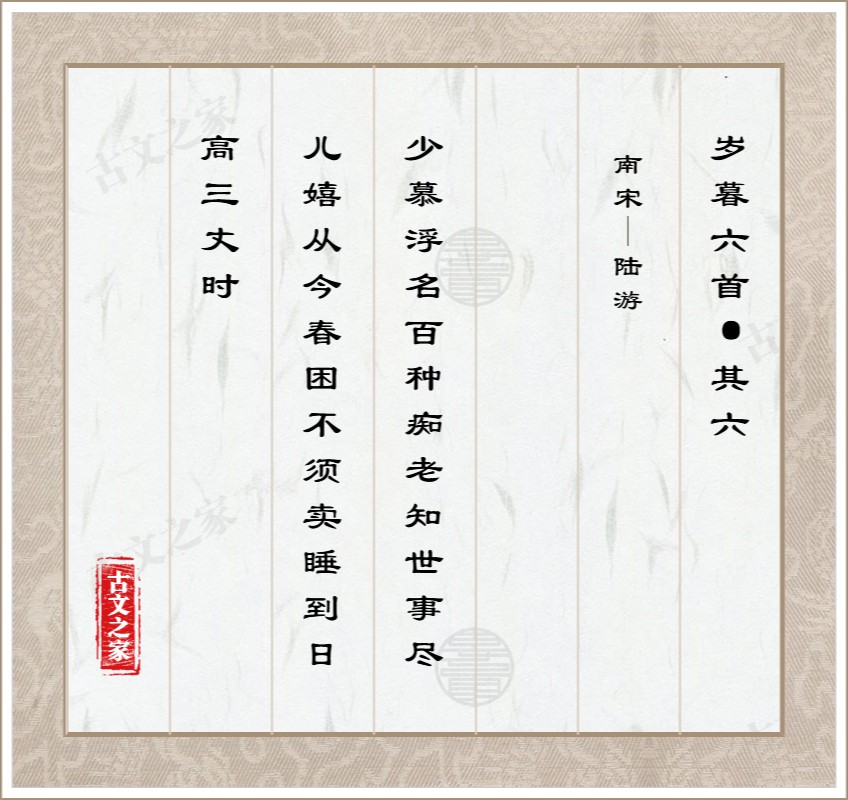 岁暮六首·其六
南宋—陆游
少慕浮名百种痴老知世事尽
儿嬉从今春困不须卖睡到日
高三丈时
古文之家
古文之家
古文之家